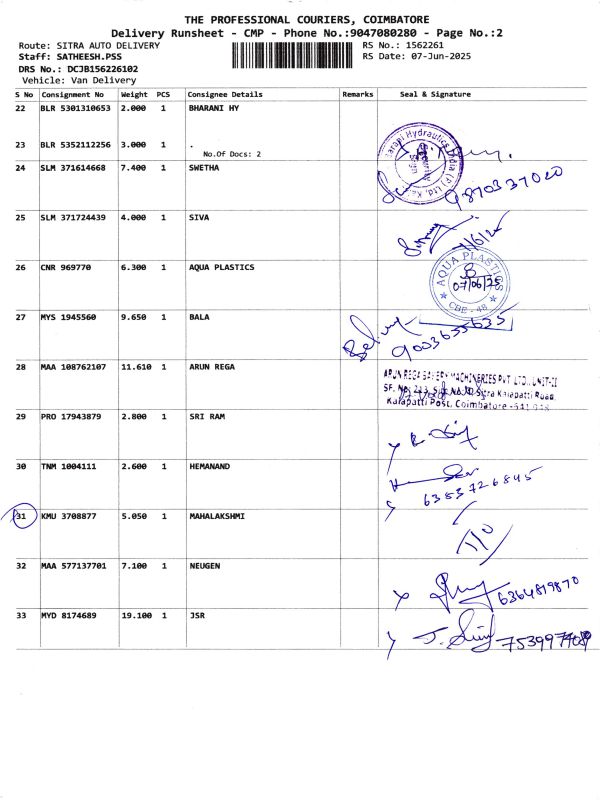 THE PROFESSIONAL COURIERS, COIMBATORE
Delivery Runsheet - CMP - Phone No.:9047080280 - Page No.:2
Route: SITRA AUTO DELIVERY RS No.: 1562261
Staff: SATHEESH.PSS RS Date: 07-Jun-2025
DRS No.: DCJB156226102
Vehicle: Van Delivery
S No Consignment No Weight PCS Consignee Details Remarks Seal & Signature
22 BLR 5301310653 2.000 1 BHARANI HY
23 BLR 5352112256 3.000 1 .
No.Of Docs: 2
24 SLM 371614668 7.400 1 SWETHA
9870337020
25 SLM 371724439 4.000 1 SIVA
26 CNR 969770 6.300 1 AQUA PLASTICS
AQUA PLASTICS
07/06/25
CBE - 48
27 MYS 1945560 9.650 1 BALA
9003655635
28 MAA 108762107 11.610 1 ARUN REGA
ARUN REGA BAKERY MACHINERIES PVT. LTD., UNIT-II
Sitra Kalapatti Road,
Kalapatti Post, Coimbatore - 641 048
29 PRO 17943879 2.800 1 SRI RAM
30 TNM 1004111 2.600 1 HEMANAND
6383726845
31 KMU 3708877 5.050 1 MAHALAKSHMI
32 MAA 577137701 7.100 1 NEUGEN
6364819870
33 MYD 8174689 19.100 1 JSR